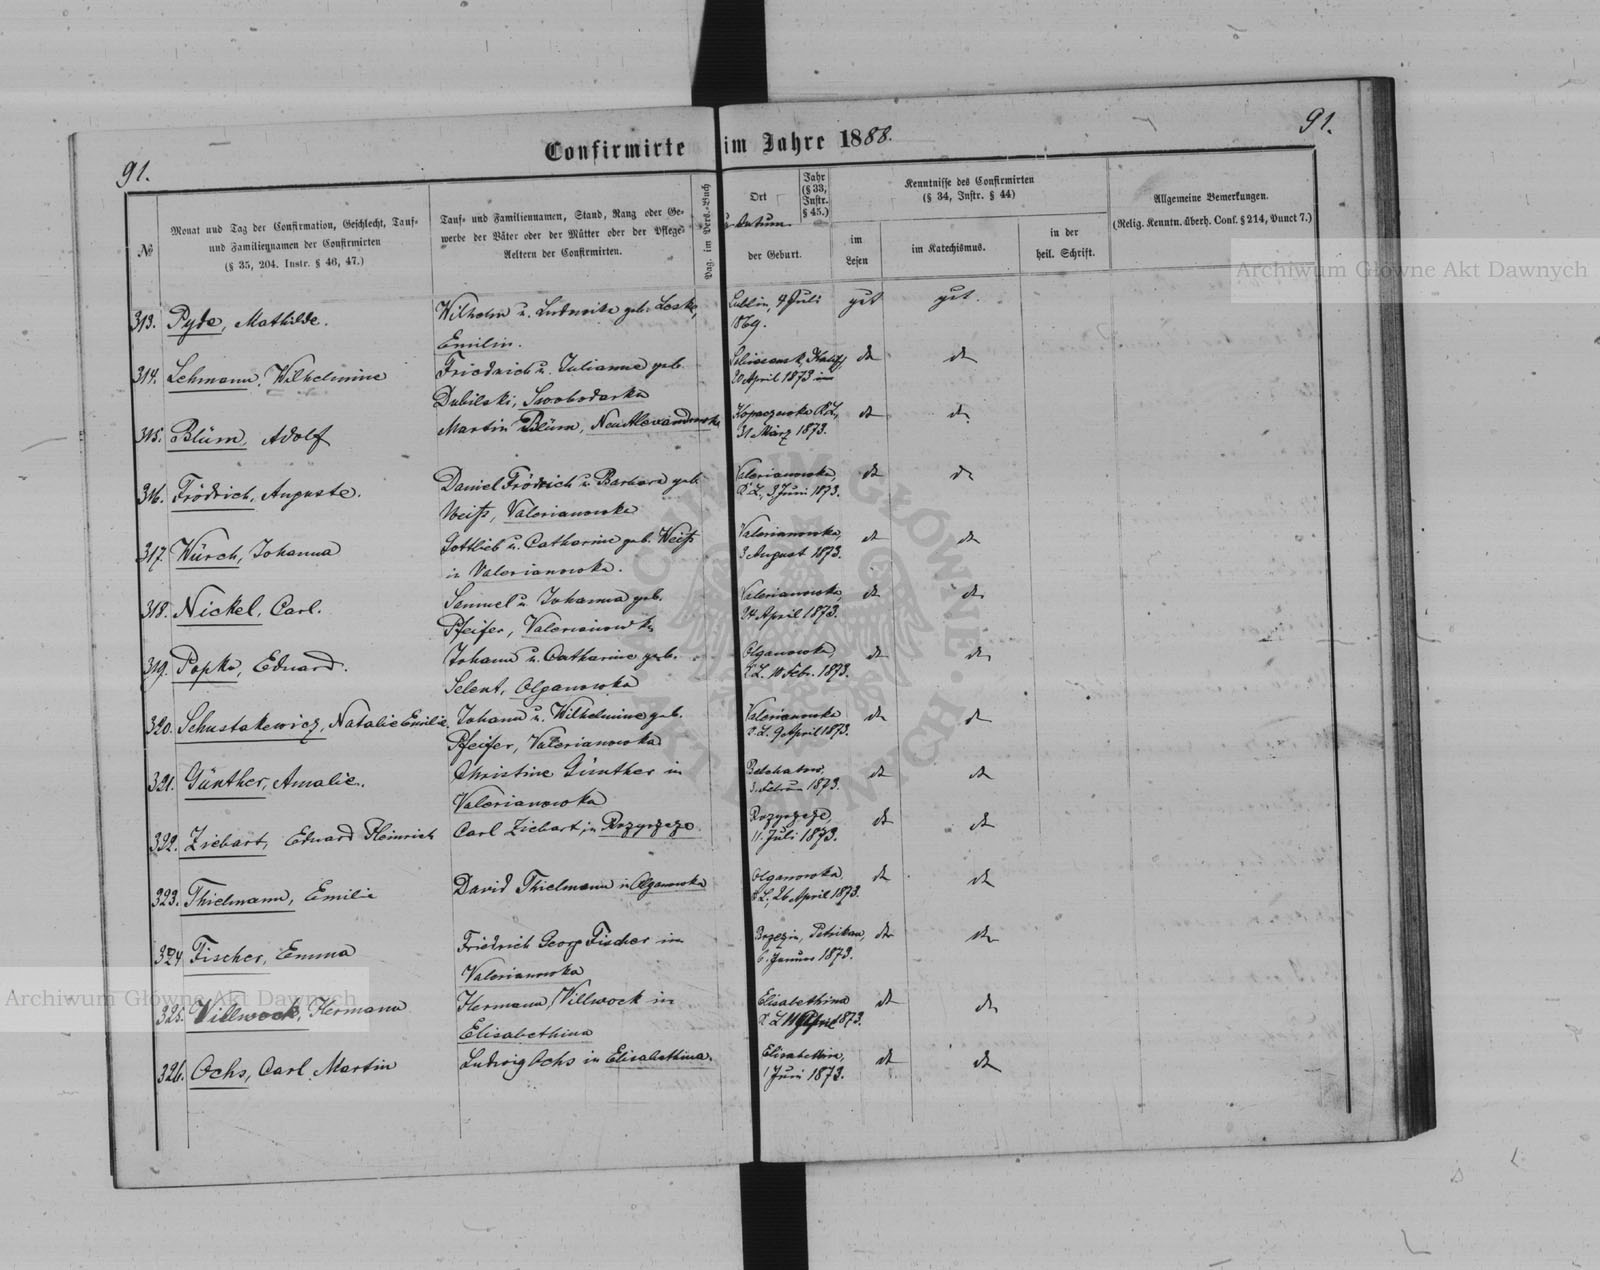 91.
91.
Confirmirte im Jahre 1888.
№
Monat und Tag der Confirmation, Geschlecht, Tauf-
und Familiennamen der Confirmirten
(§ 35, 204. Instr. § 46, 47.)
Tauf- und Familiennamen, Stand, Rang oder Ge-
werbe der Väter oder der Mütter oder der Pflege-
Aeltern der Confirmirten.
Pag. im Pers.-Buch
Ort
Jahr
(§ 33,
Instr.
§ 45.)
datum
der Geburt.
Kenntnisse des Confirmirten
(§ 34, Instr. § 44)
im
Lesen
im Katechismus.
in der
heil. Schrift.
Allgemeine Bemerkungen.
(Relig. Kenntn. überh. Conf. § 214, Punct 7.)
313. Pyde, Mathilde.
Wilhelm u. Ludwika geb. Leske,
Emilin.
Lublin, 4 Juli
869.
gut
gut.
314. Lehmann, Wilhelmine
Friedrich u. Julianne geb.
Dubilski, Swobodarka
20 April 1873
dt
dt
315. Blüm, Adolf
Martin Blüm, Neu Alexandrowka
Kopaczowka K. L.,
31 März 1873.
dt
dt
316. Frödrich, Auguste.
Daniel Frödrich u. Barbara geb.
Weiß, Valerianowka
Valerianowka,
K. L., 3 Juni 1873.
dt
dt
317. Würch, Johanna
Gottlieb u. Catharine geb. Weiß
in Valerianowka.
Valerianowka,
3 August 1873.
dt
dt
318. Nickel, Carl.
Samuel u. Johanna geb.
Pfeifer, Valerianowka
Valerianowka,
24 April 1873.
dt
dt
319. Popko, Eduard.
Johann u. Catharine geb.
Selent, Olganowka
Olganowka,
K. L. 10 Febr. 1873.
dt
dt
320. Schustakewicz, Natalie Emilie
Johann u. Wilhelmine geb.
Pfeifer, Valerianowka
Valerianowka
K. L. 9 April 1873.
dt
dt
321. Günther, Amalie.
Christine Günther in
Valerianowka
Belchatow,
Februar 1873.
dt
dt
322. Ziebart, Eduard Heinrich
Carl Ziebart, in Rozyszcze
Rozyszcze,
11. Juli 1873.
dt
dt
323. Thielmann, Emilie
David Thielmann in Olganowka
Olganowka
K. L., 26 April 1873.
dt
dt
324 Fischer, Emma
Friedrich Georg Fischer in
Valerianowka
Brzezin, Petrikau,
6. Januar 1873.
dt
dt
325. Villwock, Hermann
Hermann Villwock in
Elisabethina
Elisabethina
K. L. 11 April 1873.
dt
dt
326. Ochs, Carl Martin
Ludwig Ochs in Elisabethina.
Elisabethina,
1 Juni 1873.
dt
dt
Archiwum Główne Akt Dawnych
Archiwum Główne Akt Dawnych
ARCHIWUM GŁÓWNE AKT DAWNYCH